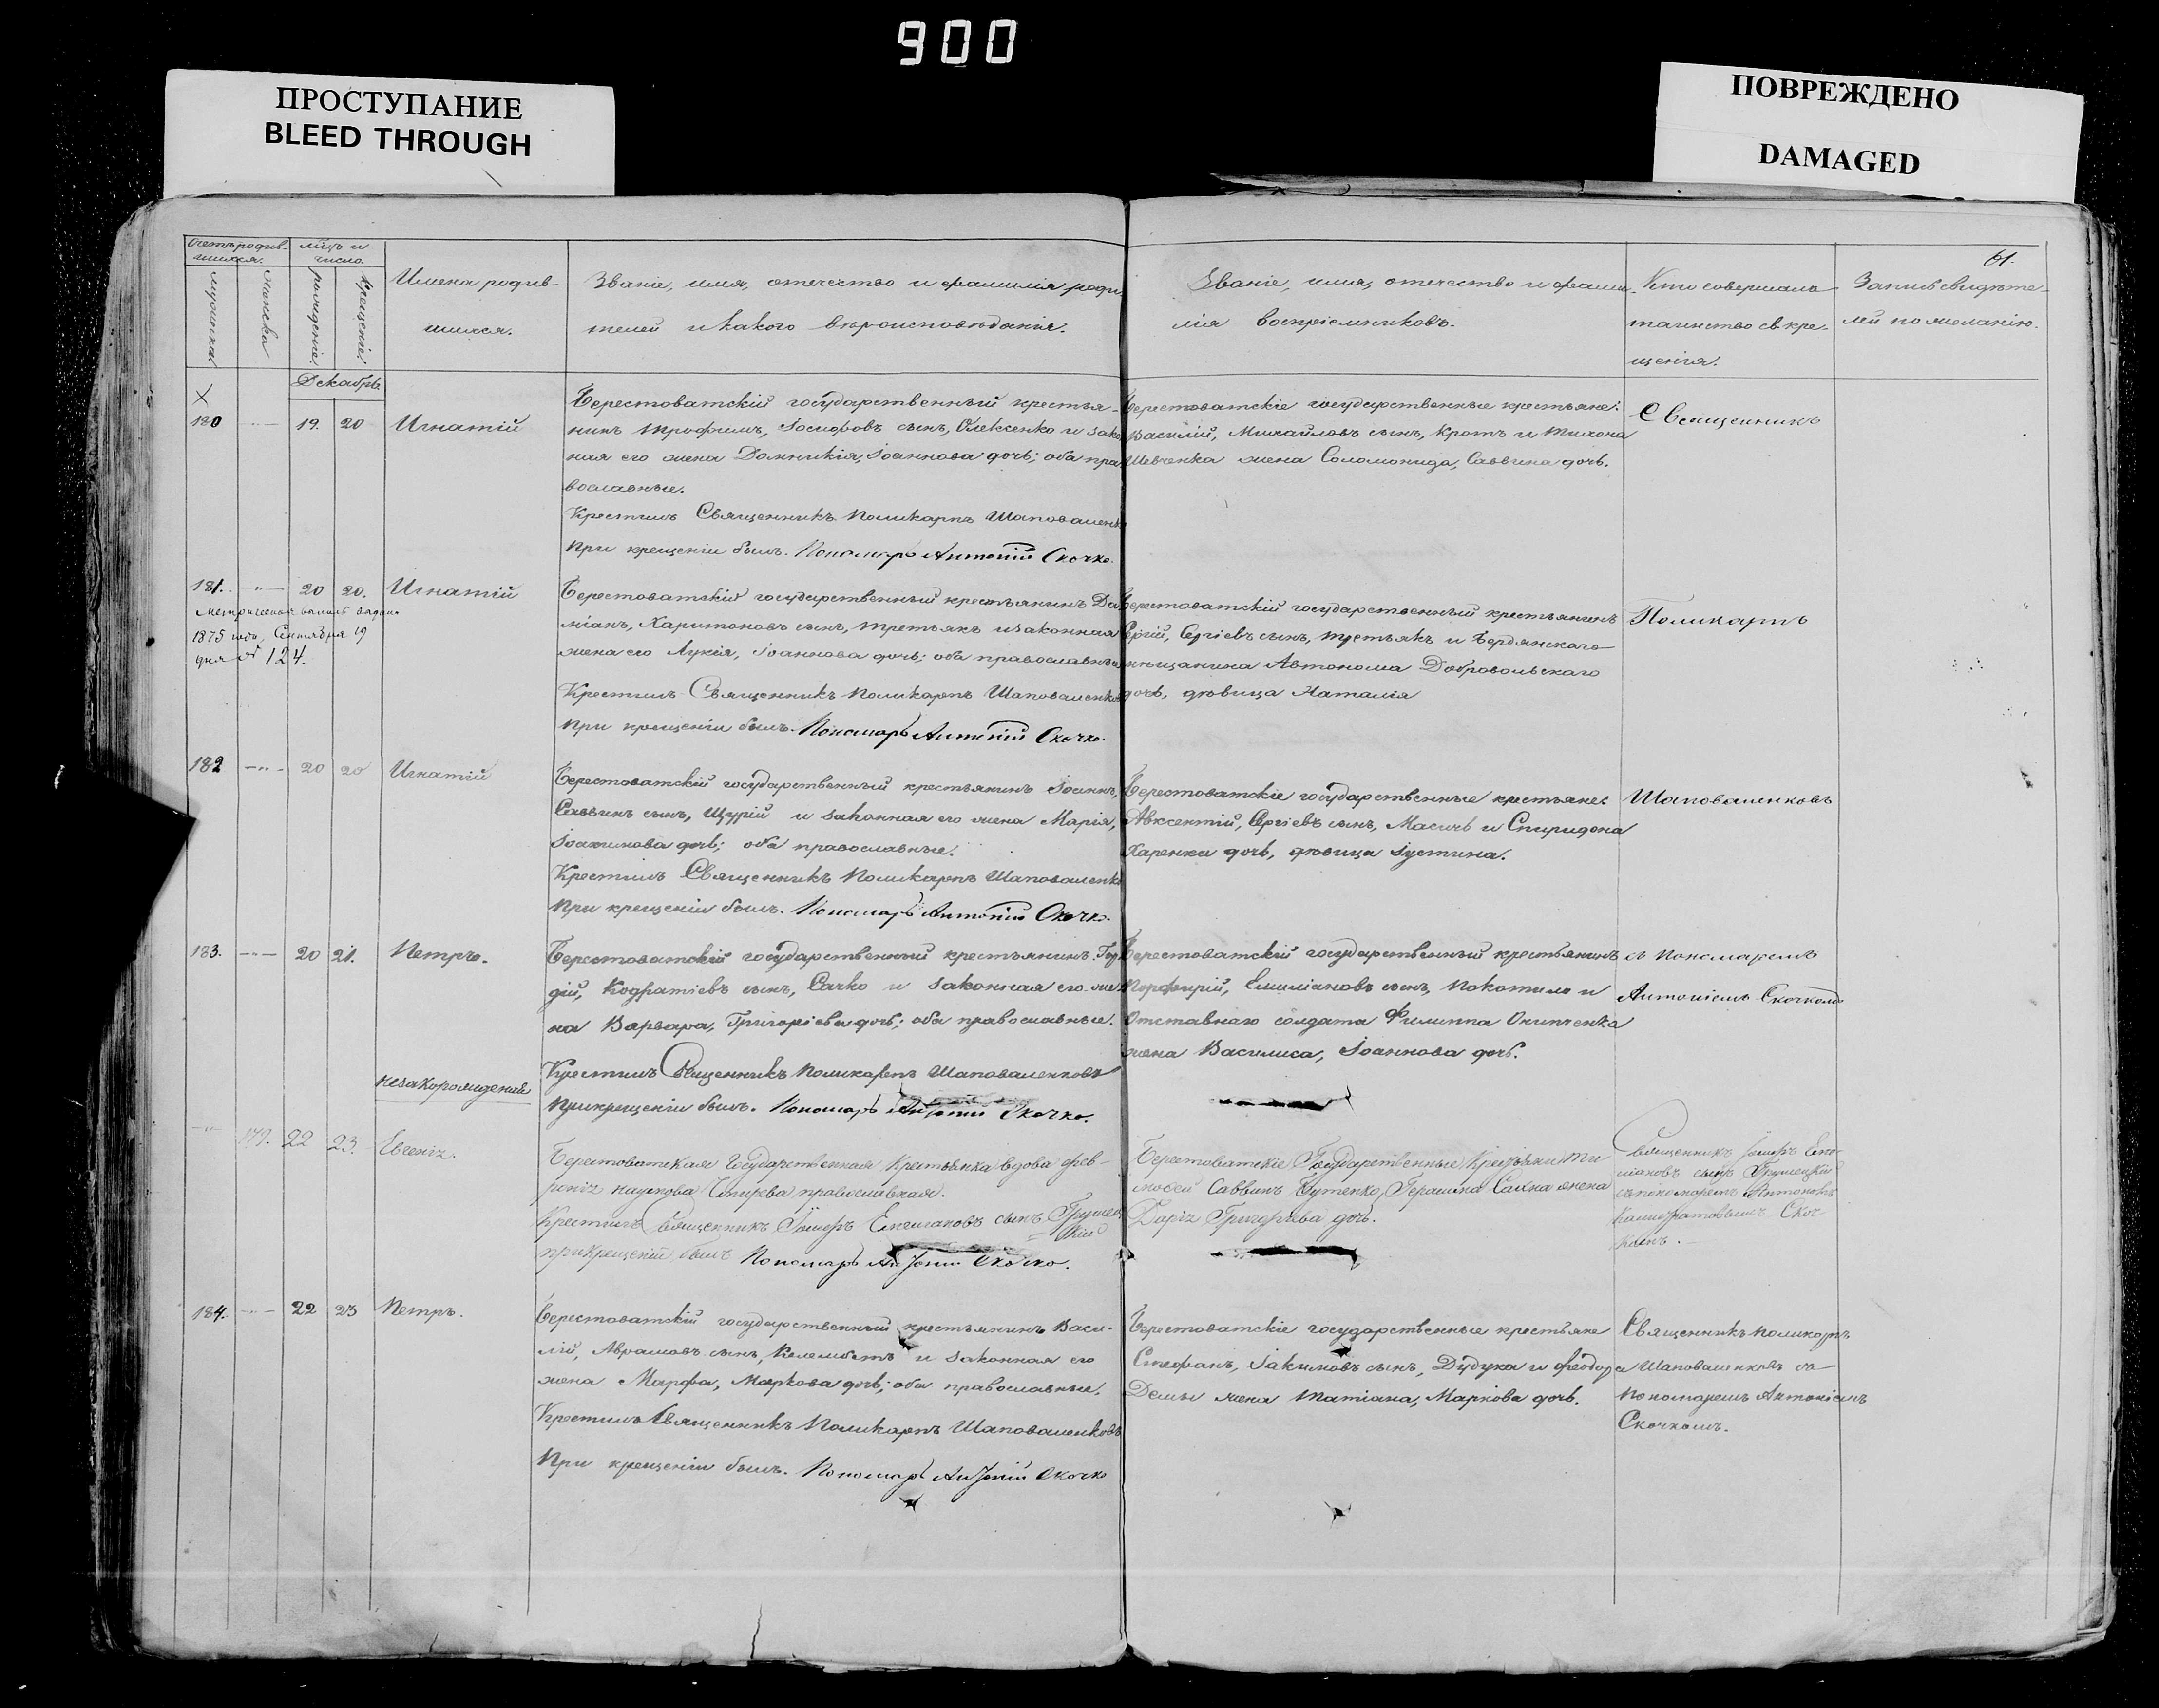 900
ПРОСТУПАНИЕ
BLEED THROUGH
ПОВРЕЖДЕНО
DAMAGED
61.
Счетъ родив-
шихся.
мужеска
женска
мѣсъ и
число.
рожденіе.
крещеніе.
Имена родив-
шихся.
Званіе, имя, отечество и фамилія роди-
телей и какого вѣроисповѣданія.
Званіе, имя, отечество и фами-
лія воспріемниковъ.
Кто совершалъ
таинство св. кре-
щенія.
Запись свидѣте-
лей по желанію.
Декабрь
180 19. 20 Игнатій
Берестоватскій государственный крестья-
нинъ Трофимъ, Іосифовъ сынъ, Олексенко и зако
ная его жена Домникія, Іоаннова дочь; оба пра
вославные.
Крестилъ Священникъ Поликарпъ Шаповаленк
При крещеніи былъ. Пономарь Антоній Скочко.
Берестоватскіе государственные крестьяне:
Василій, Михайловъ сынъ, Кротъ и Тихона
Шевченка жена Соломонида, Саввина дочь.
Священникъ
181. 20 20. Игнатій
Метрическая выпись выдана
1875 года, Сентября 19
дня № 124.
Берестоватскій государственный крестьянинъ Да
міанъ, Харитоновъ сынъ, Третьякъ и законная
жена его Лукія, Іоаннова дочь; оба православные
Крестилъ Священникъ Поликарпъ Шаповаленков
При крещеніи былъ. Пономарь Антоній Скочко.
Берестоватскій государственный крестьянинъ
Сергій, Сергіевъ сынъ, Третьякъ и Бердянскаго
мѣщанина Автонома Добровольскаго
дочь, дѣвица Наталія
Поликарпъ
182 20 20 Игнатій
Берестоватскій государственный крестьянинъ Іоаннъ,
Саввинъ сынъ, Щурій и законная его жена Марія,
Іоакимова дочь; оба православные.
Крестилъ Священникъ Поликарпъ Шаповаленко
При крещеніи былъ. Пономарь Антоній Скочко.
Берестоватскіе государственные крестьяне:
Авксентій, Сергіевъ сынъ, Масичь и Спиридона
Харенка дочь, дѣвица Іустина.
Шаповаленковъ
183. 20 21. Петръ.
Берестоватскій государственный крестьянинъ Гор
дій, Кодратіевъ сынъ, Сачко и законная его же
на Варвара, Григоріева дочь; оба православные.
Крестилъ Священникъ Поликарпъ Шаповаленковъ
При крещеніи былъ. Пономарь Антоній Скочко.
Берестоватскій государственный крестьянинъ
Порфирій, Емиліановъ сынъ, Покотило и
Отставнаго солдата Филиппа Онипченка
жена Василиса, Іоаннова дочь.
съ Пономаремъ
Антоніемъ Скочкомъ
незакорожденній
179. 22 23. Евгенія.
Берестоватская Государственная Крестьянка вдова Фев-
ронія Наумова православная.
Крестилъ Священникъ Іосифъ Емеліановъ сынъ Грушец
кій
при крещеніи былъ Пономарь Антоній Скочко.
Берестоватскіе Государственные Крестьяни Ти
мофей Саввинъ Бутенко, Герасима жена
Дарія Григорьева дочь.
Священникъ Іосифъ Еме-
ліановъ сынъ Грушецкій
съ пономаремъ Антоніемъ
Скоч-
комъ.
184. 22 23 Петръ.
Берестоватскій государственный крестьянинъ Васи-
лій, Аврамовъ сынъ, Келембетъ и законная его
жена Марфа, Маркова дочь; оба православные.
Крестилъ Священникъ Поликарпъ Шаповаленковъ
При крещеніи былъ. Пономарь Антоній Скочко
Берестоватскіе государственные крестьяне
Стефанъ, Іакимовъ сынъ, Дудука и Феодора
Демы жена Татіана, Маркова дочь.
Священникъ Поликарпъ
Шаповаленковъ со
Пономаремъ Антоніемъ
Скочкомъ.